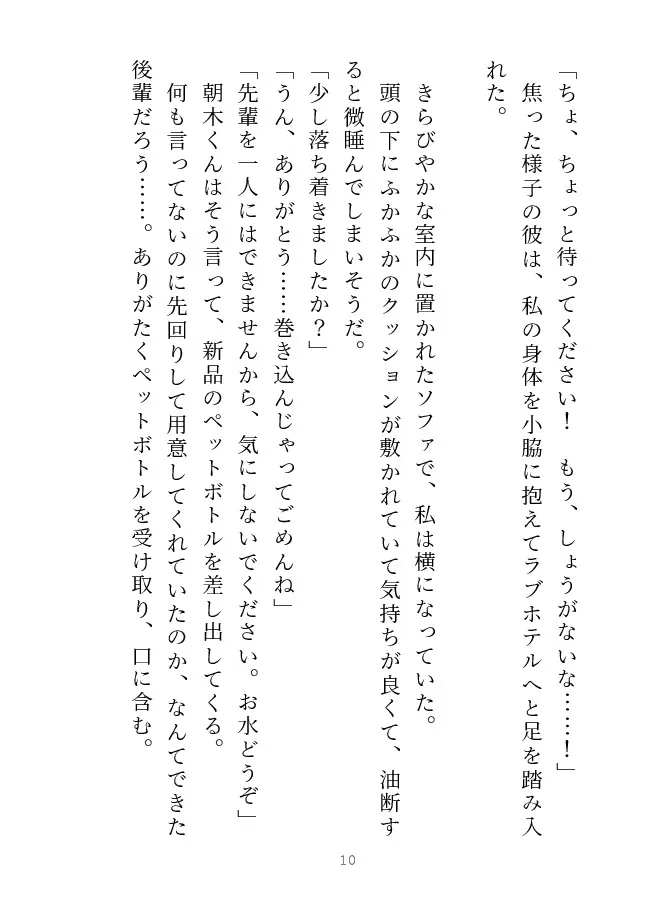 「ちょ、ちょっと待ってください！　もう、しょうがないな……！」
　焦った様子の彼は、私の身体を小脇に抱えてラブホテルへと足を踏み入
れた。
　きらびやかな室内に置かれたソファで、私は横になっていた。
　頭の下にふかふかのクッションが敷かれていて気持ちが良くて、油断す
ると微睡んでしまいそうだ。
「少し落ち着きましたか？」
「うん、ありがとう……巻き込んじゃってごめんね」
「先輩を一人にはできませんから、気にしないでください。お水どうぞ」
　朝木くんはそう言って、新品のペットボトルを差し出してくる。
　何も言ってないのに先回りして用意してくれていたのか、なんてできた
後輩だろう……。ありがたくペットボトルを受け取り、口に含む。
10